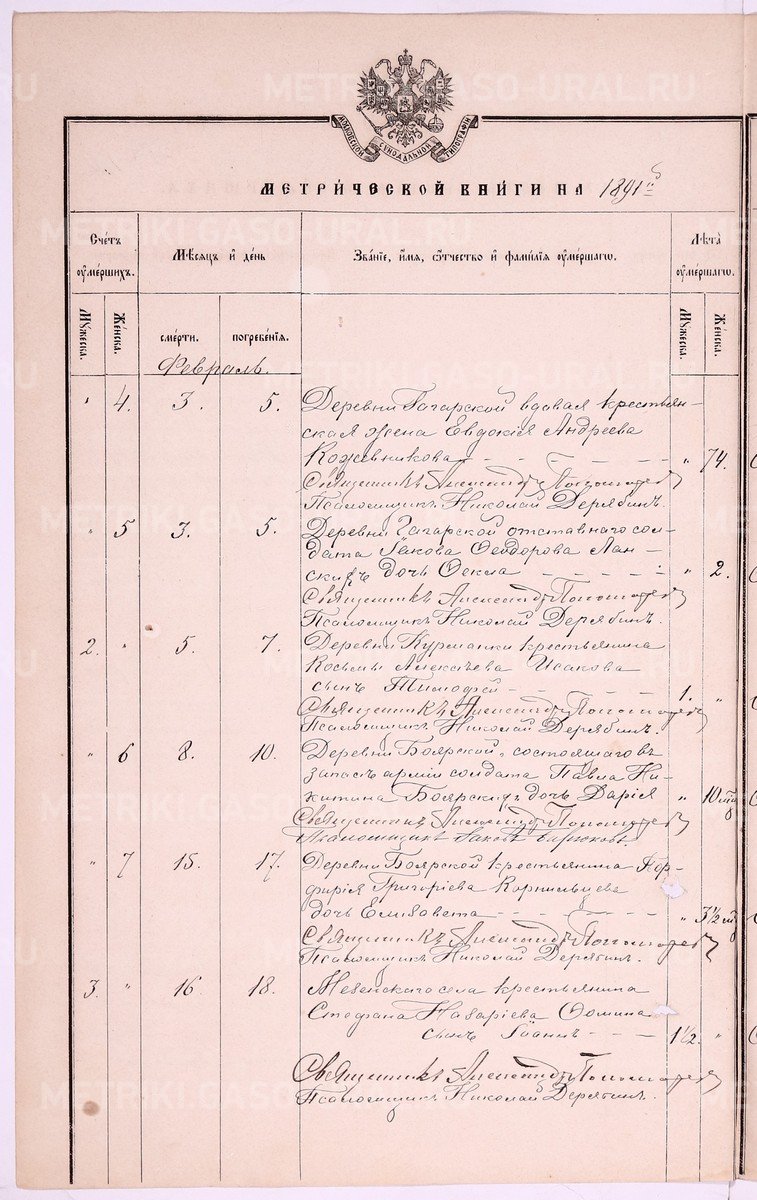 МОСКОВСКОЙ СУНОДАЛЬНОЙ ТИПОГРАФІИ
МЕТРИ́ЧЕСКОЙ КНИ́ГИ НА 1891й
Сче́тъ ᲂу҆ме́ршихъ.
Мѣ́сяцъ и҆ де́нь
Зва́нїе, и҆́мѧ, ѻ҆́тчество и҆ фами́лїѧ ᲂу҆ме́ршагѡ.
Лѣ́та ᲂу҆ме́ршагѡ.
Мꙋ́жеска. Же́нска. сме́рти. погребе́нїѧ. Мꙋ́жеска. Же́нска.
Февраль.
" 4. 3. 5. Деревни Гагарской вдовая крестьян-
ская жена Евдокія Андреева
Кожевникова - - - " 74.
Священникъ Александръ Пономаревъ
Псаломщикъ Николай Дерябинъ.
" 5 3. 5. Деревни Гагарской отставнаго сол-
дата Іакова Ѳеодорова Лан-
скихъ дочь Ѳекла - - - " 2.
Священникъ Александръ Пономаревъ
Псаломщикъ Николай Дерябинъ.
2. " 5. 7. Деревни Курманки крестьянина
Косьмы Алексѣева Исакова
сынъ Тимофей - - - 1. "
Священникъ Александръ Пономаревъ
Псаломщикъ Николай Дерябинъ.
" 6 8. 10. Деревни Боярской, состоящаго въ
запасѣ арміи солдата Павла Ни-
китина Боярскихъ дочь Дарія " 10 м
Священникъ Александръ Пономаревъ
Псаломщикъ Іаковъ Бирюковъ.
" 7 15. 17. Деревни Боярской крестьянина Пор-
фирія Григоріева Корнильцева
дочь Елизавета - - - " 3½ м
Священникъ Александръ Пономаревъ
Псаломщикъ Николай Дерябинъ.
3. " 16 18. Мезенскаго села крестьянина
Стефана Назаріева Ѳомина
сынъ Іоаннъ - - - 1½. "
Священникъ Александръ Пономаревъ
Псаломщикъ Николай Дерябинъ.
METRIKI.GASO-URAL.RU